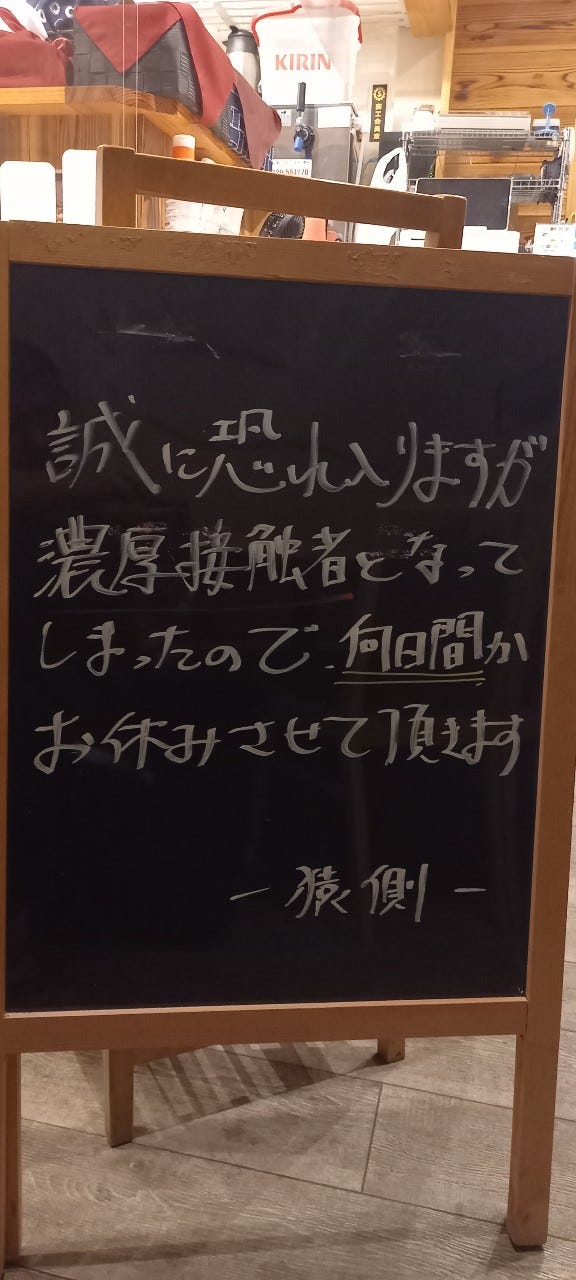 KIRIN
誠に恐れ入りますが
濃厚接触者となって
しまったので、何日間か
お休みさせて頂きます
－猿側－